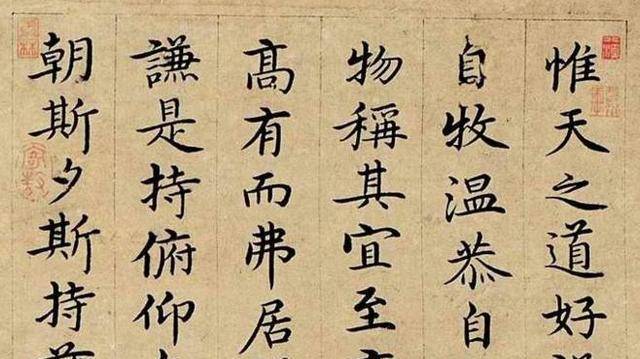 惟天之道好
自牧温恭自
物稱其宜至
髙有而弗居
謙是持俯仰
朝斯夕斯持